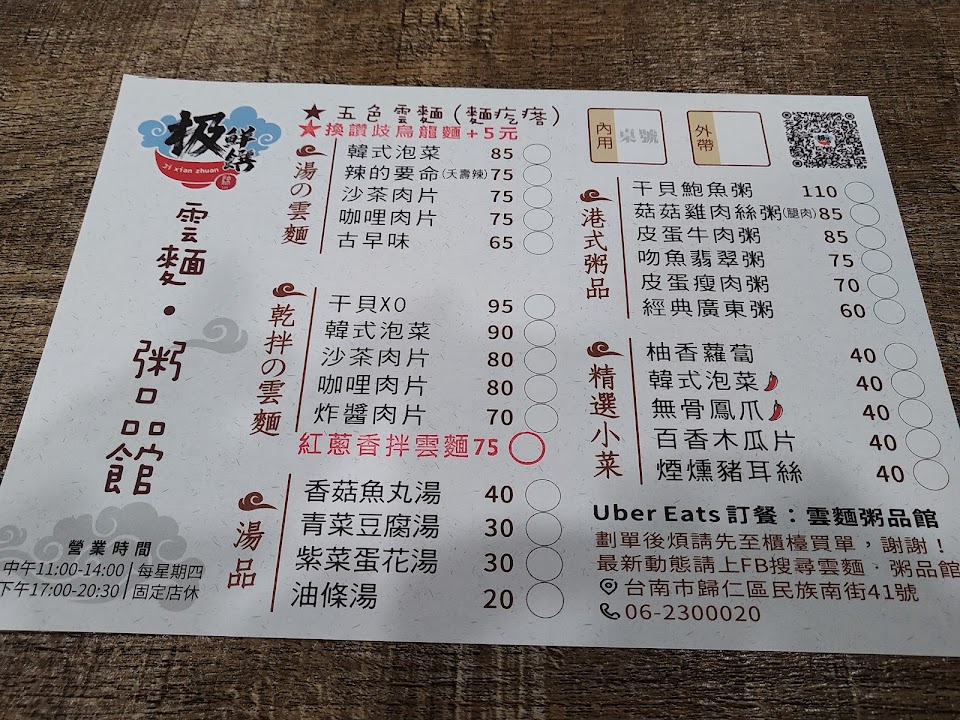 极鮮饌
Ji xian zhuan
雲麵・粥品館
營業時間
中午11:00-14:00
下午17:00-20:30
每星期四
固定店休
★五色雲麵(麵疙瘩)
★換讚歧烏龍麵+5元
湯の雲麵
韓式泡菜 85
辣的要命(天壽辣) 75
沙茶肉片 75
咖哩肉片 75
古早味 65
乾拌の雲麵
干貝XO 95
韓式泡菜 90
沙茶肉片 80
咖哩肉片 80
炸醬肉片 70
紅蔥香拌雲麵 75
湯品
香菇魚丸湯 40
青菜豆腐湯 30
紫菜蛋花湯 30
油條湯 20
內用 桌號
外帶
港式粥品
干貝鮑魚粥 110
菇菇雞肉絲粥(腿肉) 85
皮蛋牛肉粥 85
吻魚翡翠粥 75
皮蛋瘦肉粥 70
經典廣東粥 60
精選小菜
柚香蘿蔔 40
韓式泡菜 40
無骨鳳爪 40
百香木瓜片 40
煙燻豬耳絲 40
Uber Eats 訂餐：雲麵粥品館
劃單後煩請先至櫃檯買單，謝謝！
最新動態請上FB搜尋雲麵・粥品館
台南市歸仁區民族南街41號
06-2300020